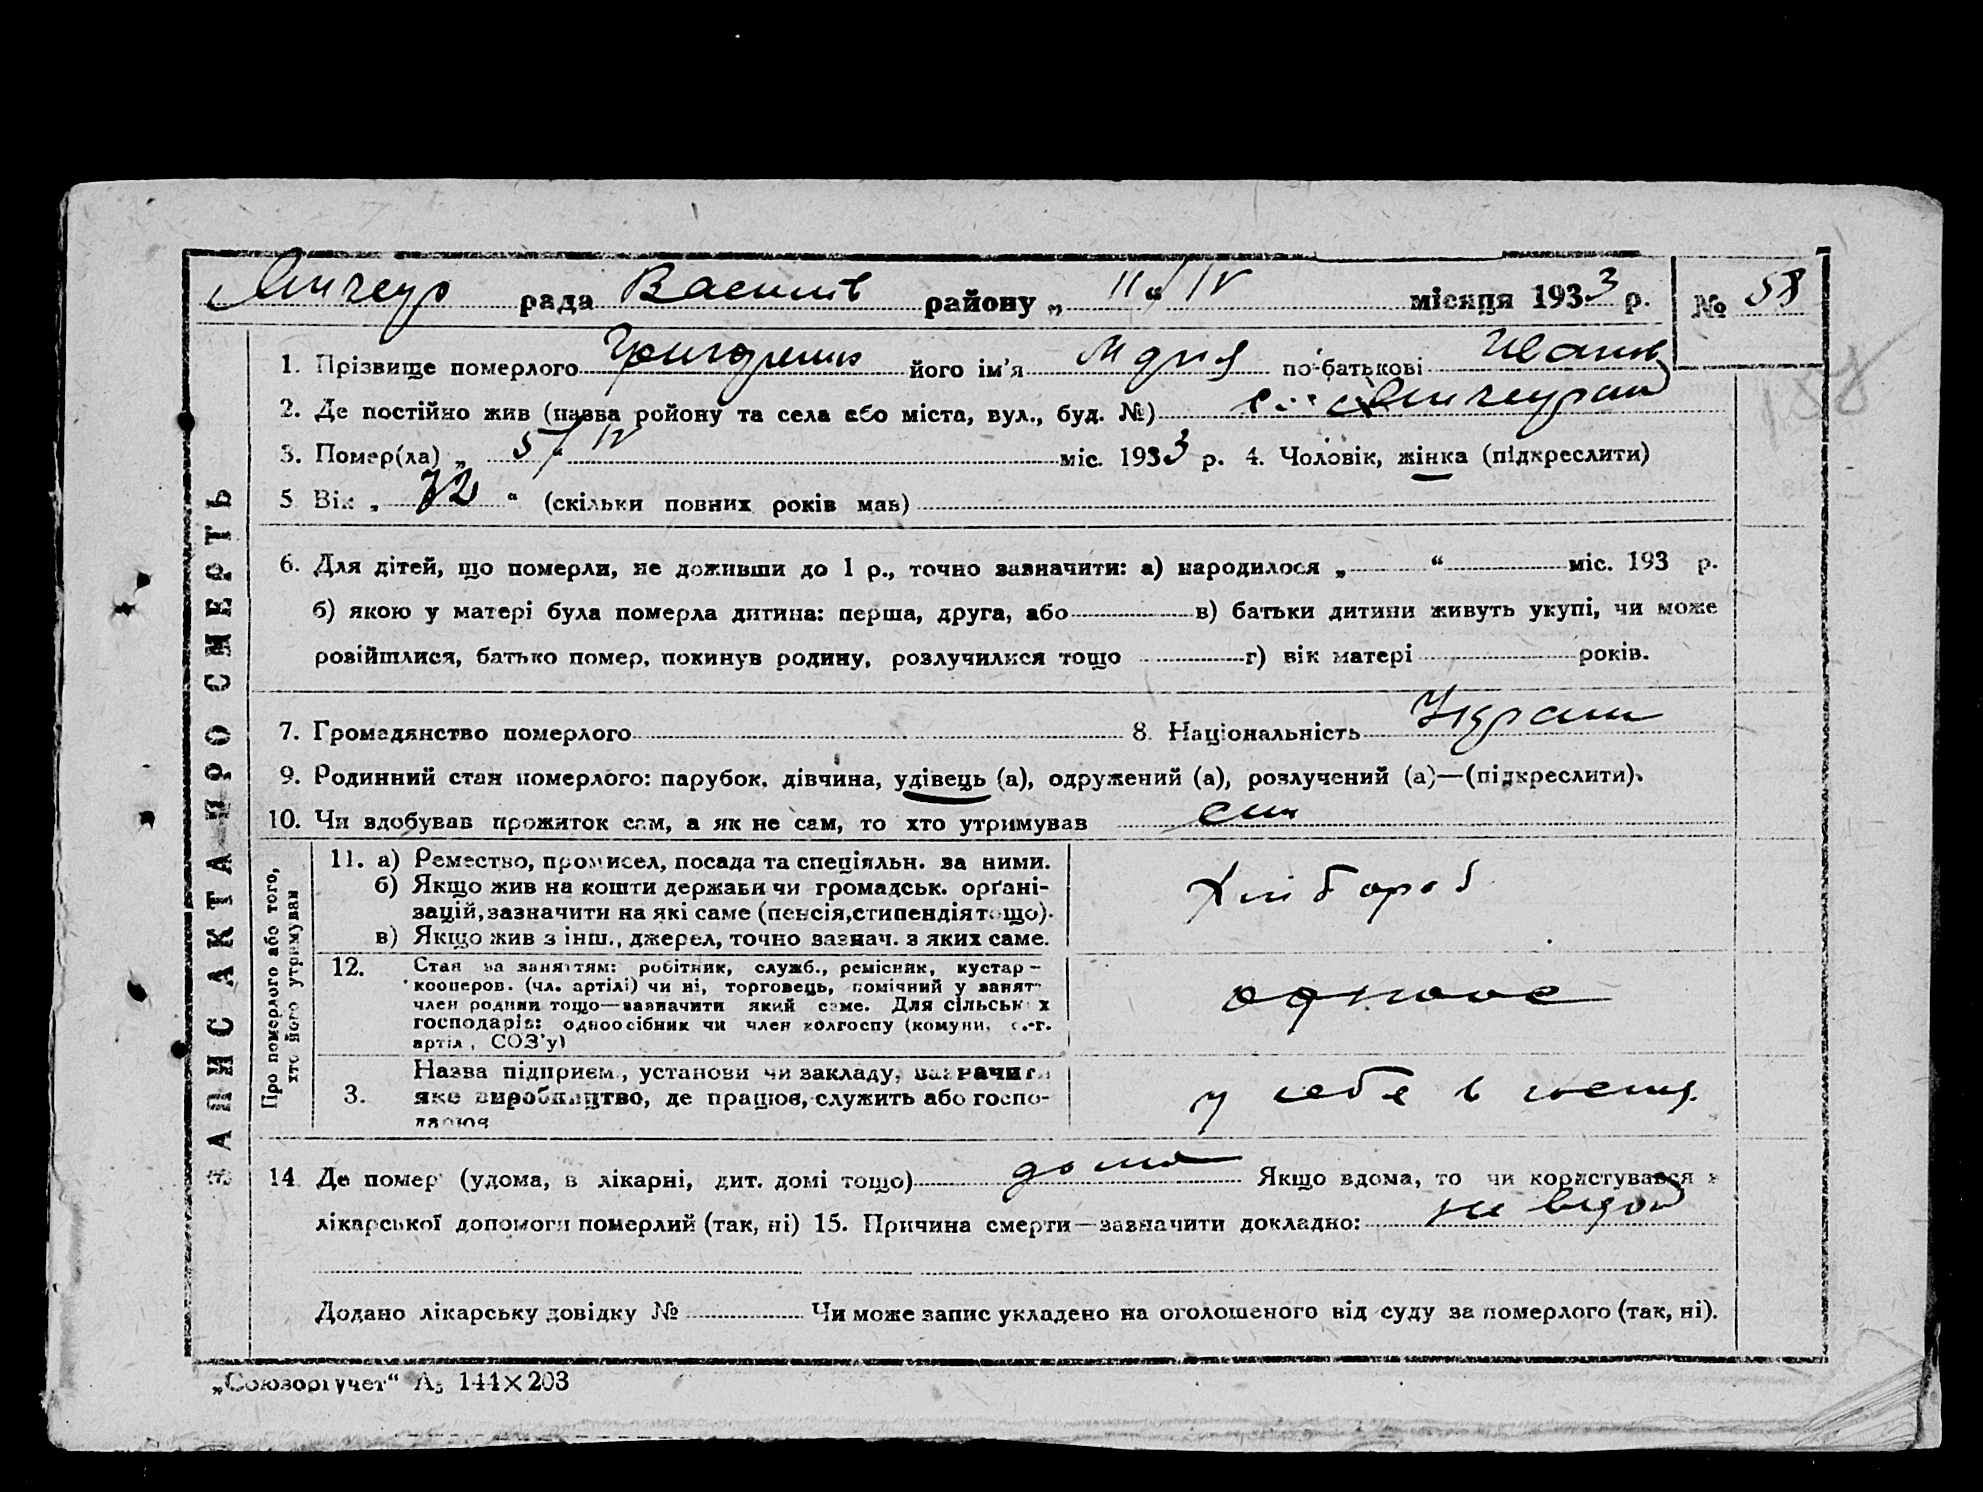 рада Василів району „ 11 “ IV місяця 1933 р. № 58
1. Прізвище померлого його ім'я Марія по-батькові Іванів
2. Де постійно жив (назва ройону та села або міста, вул., буд. №) с.
3. Помер(ла) „ 5 “ IV міс. 1933 р. 4. Чоловік, жінка (підкреслити)
5 Вік „ 72 “ (скільки повних років мав)
6. Для дітей, що померли, не доживши до 1 р., точно зазначити: а) народилося „ “ міс. 193 р.
б) якою у матері була померла дитина: перша, друга, або в) батьки дитини живуть укупі, чи може
розійшлися, батько помер, покинув родину, розлучилися тощо г) вік матері років.
7. Громадянство померлого 8. Національність Україн
9. Родинний стан померлого: парубок, дівчина, удівець (а), одружений (а), розлучений (а)—(підкреслити).
10. Чи здобував прожиток сам, а як не сам, то хто утримував син
ЗАПИС АКТА ПРО СМЕРТЬ
Про померлого або того,
хто його утримував
11. а) Ремество, промисел, посада та спеціяльн. за ними.
б) Якщо жив на кошти держави чи громадськ. орґані-
зацій, зазначити на які саме (пенсія, стипендія тощо).
в) Якщо жив з інш., джерел, точно зазнач. з яких саме.
Хлібороб
12. Стан за заняттям: робітник, служб., ремісник, кустар –
кооперов. (чл. артілі) чи ні, торговець, помічний у занят-
член родини тощо—зазначити який саме. Для сільськ х
господарів: одноосібник чи член колгоспу (комуни, с.-г.
артіл, СОЗ'у)
3. Назва підприєм., установи чи закладу, зазначити
яке виробництво, де працює, служить або госпо-
дарює
у себе в
14 Де помер (удома, в лікарні, дит. домі тощо) дома Якщо вдома, то чи користувався з
лікарської допомоги померлий (так, ні) 15. Причина смерти—зазначити докладно: не відом
Додано лікарську довідку № Чи може запис укладено на оголошеного від суду за померлого (так, ні).
„Союзоргучет“ А5 144×203